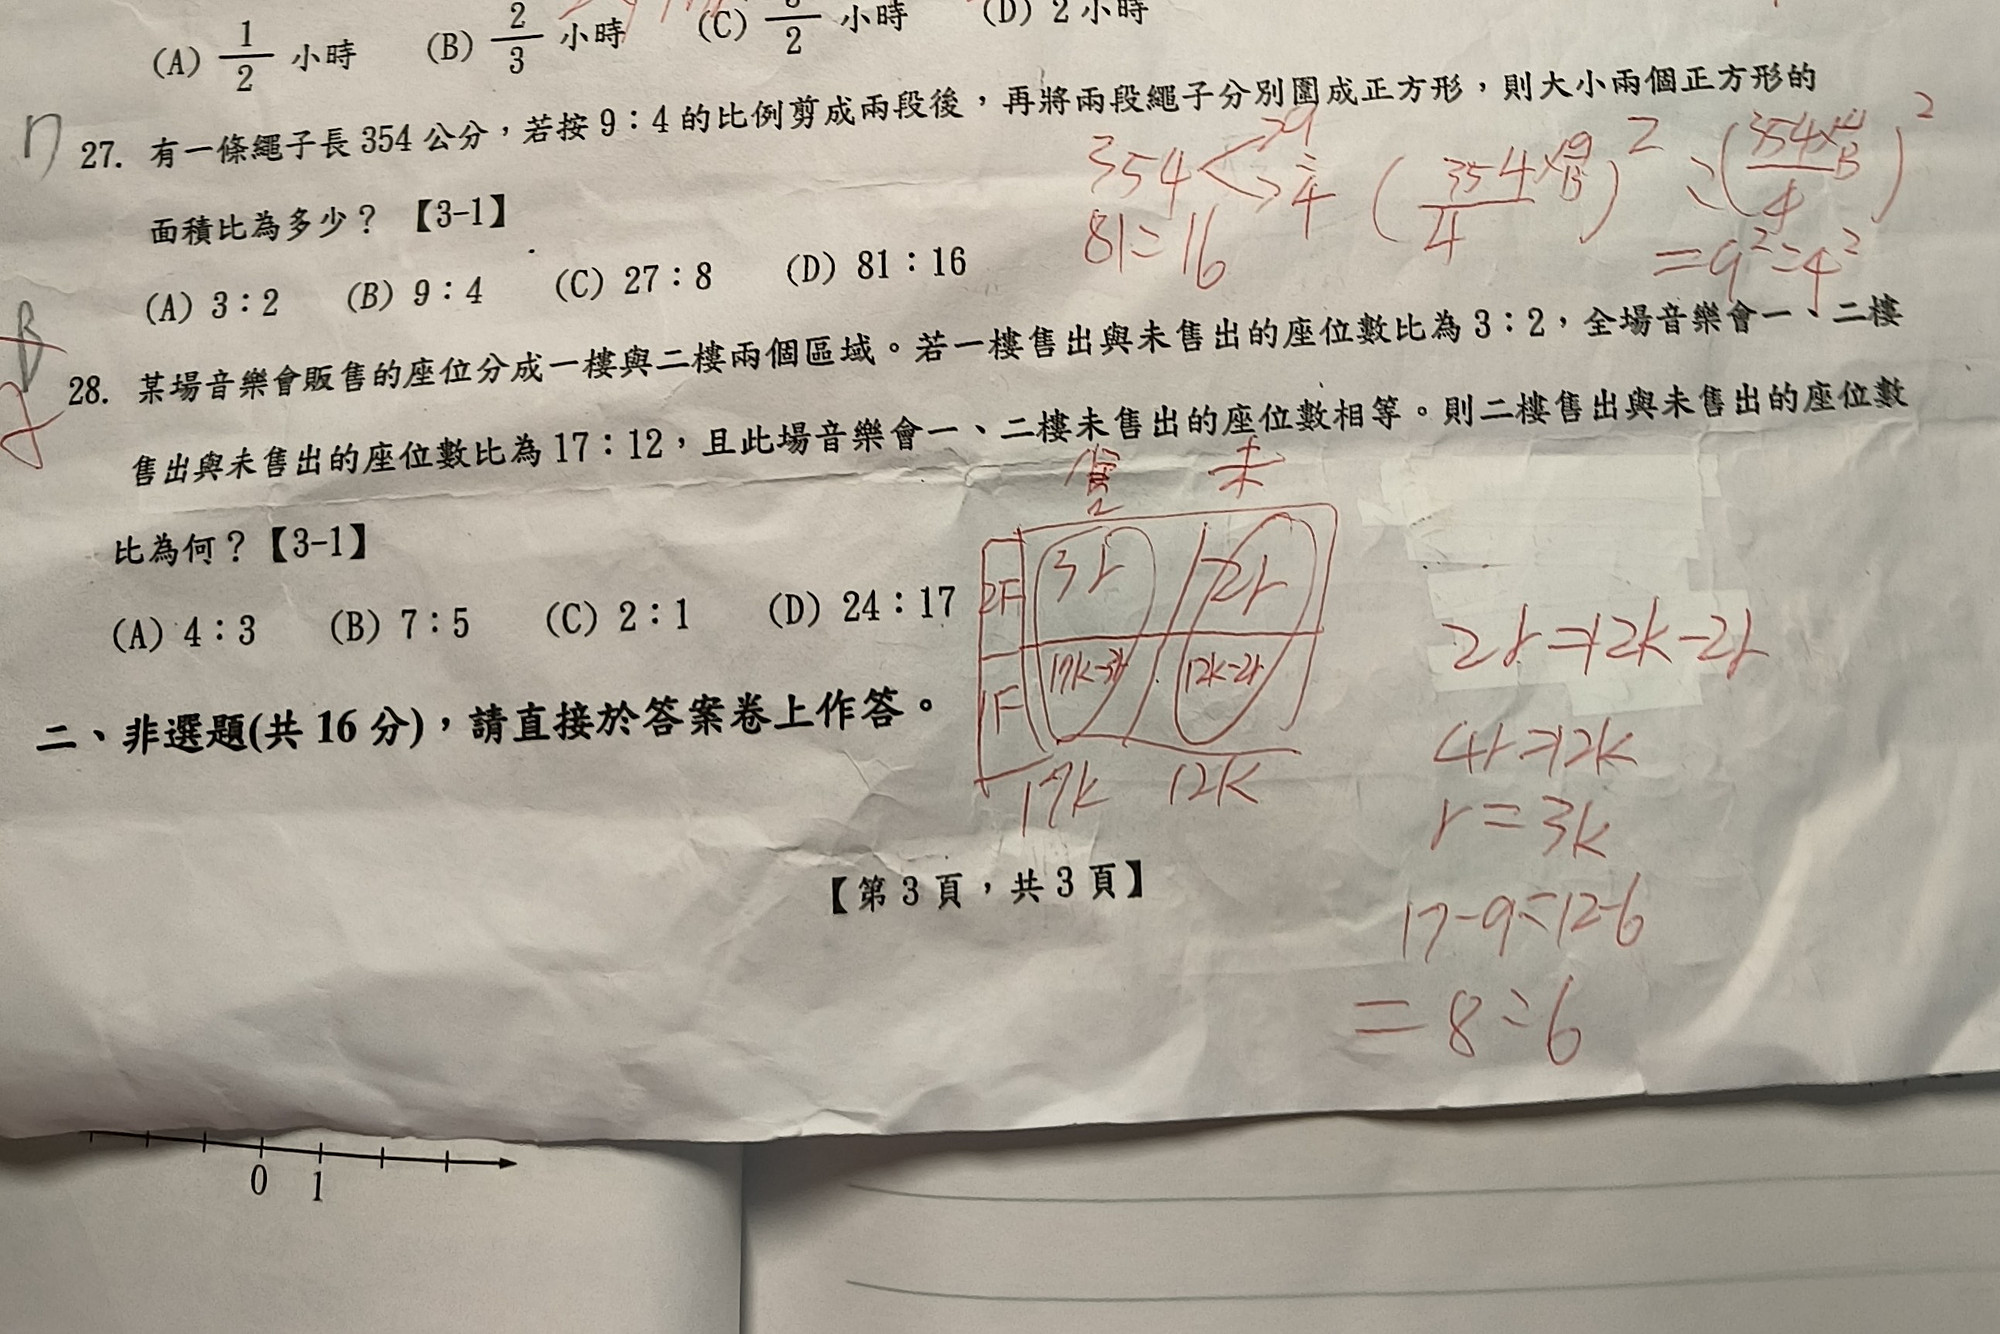 (A) 1/2 小時 (B) 2/3 小時 (C) /2 小時 (D) 2 小時
27. 有一條繩子長 354 公分,若按 9:4 的比例剪成兩段後,再將兩段繩子分別圍成正方形,則大小兩個正方形的
面積比為多少? 【3-1】
(A) 3:2 (B) 9:4 (C) 27:8 (D) 81:16
354 < 9 : 4
81:16
(354×9/13 / 4)² : (354×4/13 / 4)²
= 9² : 4²
B
28. 某場音樂會販售的座位分成一樓與二樓兩個區域。若一樓售出與未售出的座位數比為 3:2,全場音樂會一、二樓
售出與未售出的座位數比為 17:12,且此場音樂會一、二樓未售出的座位數相等。則二樓售出與未售出的座位數
比為何?【3-1】
(A) 4:3 (B) 7:5 (C) 2:1 (D) 24:17
售 未
2F 3r 2r
1F 17k-3r 12k-2r
17k 12k
2r=12k-2r
4r=12k
r=3k
17-9:12-6
=8:6
二、非選題(共 16 分),請直接於答案卷上作答。
【第 3 頁,共 3 頁】
0 1